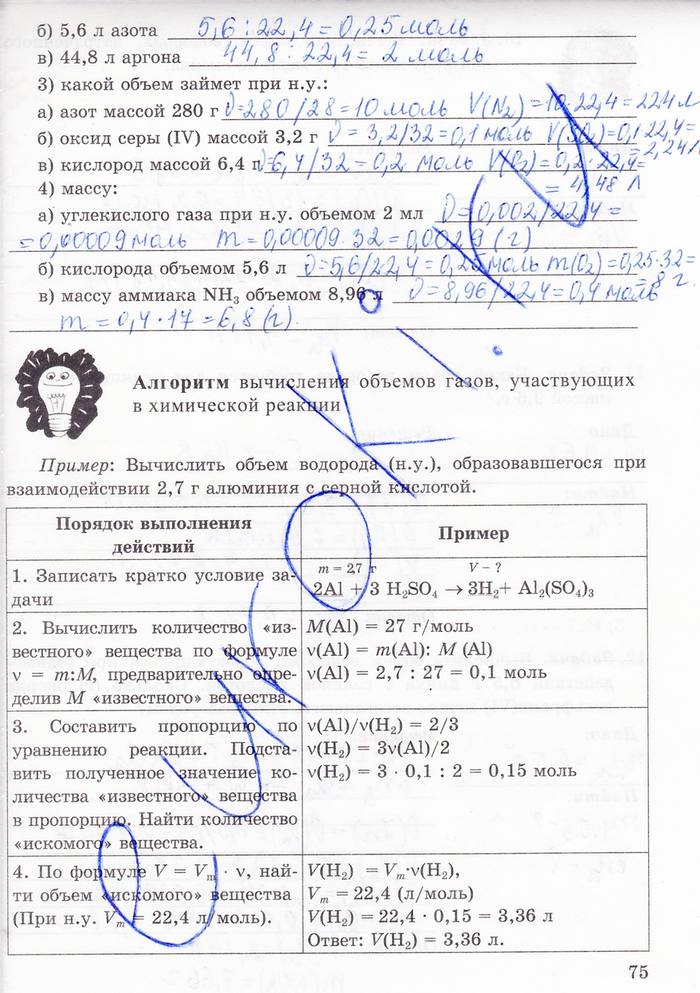 б) 5,6 л азота 5,6 : 22,4 = 0,25 моль
в) 44,8 л аргона 44,8 : 22,4 = 2 моль
3) какой объем займет при н.у.:
а) азот массой 280 г ν=280/28=10 моль V(N₂)=10·22,4=224 л
б) оксид серы (IV) массой 3,2 г ν = 3,2/32=0,1 моль V(SO₂)=0,1·22,4=
=2,24 л
в) кислород массой 6,4 г ν=6,4/32=0,2 моль V(O₂)=0,2·22,4=
= 4,48 л
4) массу:
а) углекислого газа при н.у. объемом 2 мл ν=0,002/22,4=
=0,00009 моль m=0,00009·32=0,0029 (г)
б) кислорода объемом 5,6 л ν=5,6/22,4=0,25 моль m(O₂)=0,25·32=
=8 г.
в) массу аммиака NH₃ объемом 8,96 л ν=8,96/22,4=0,4 моль
m=0,4·17=6,8 (г).
Алгоритм вычисления объемов газов, участвующих
в химической реакции
Пример: Вычислить объем водорода (н.у.), образовавшегося при
взаимодействии 2,7 г алюминия с серной кислотой.
Порядок выполнения
действий
Пример
1. Записать кратко условие за-
дачи
m = 2,7 г V – ?
2Al + 3 H₂SO₄ → 3H₂+ Al₂(SO₄)₃
2. Вычислить количество «из-
вестного» вещества по формуле
ν = m:M, предварительно опре-
делив M «известного» вещества.
M(Al) = 27 г/моль
ν(Al) = m(Al): M (Al)
ν(Al) = 2,7 : 27 = 0,1 моль
3. Составить пропорцию по
уравнению реакции. Подста-
вить полученное значение ко-
личества «известного» вещества
в пропорцию. Найти количество
«искомого» вещества.
ν(Al)/ν(H₂) = 2/3
ν(H₂) = 3ν(Al)/2
ν(H₂) = 3 · 0,1 : 2 = 0,15 моль
4. По формуле V = Vₘ · ν, най-
ти объем «искомого» вещества
(При н.у. Vₘ = 22,4 л/моль).
V(H₂) = Vₘ·ν(H₂),
Vₘ = 22,4 (л/моль)
V(H₂) = 22,4 · 0,15 = 3,36 л
Ответ: V(H₂) = 3,36 л.
75